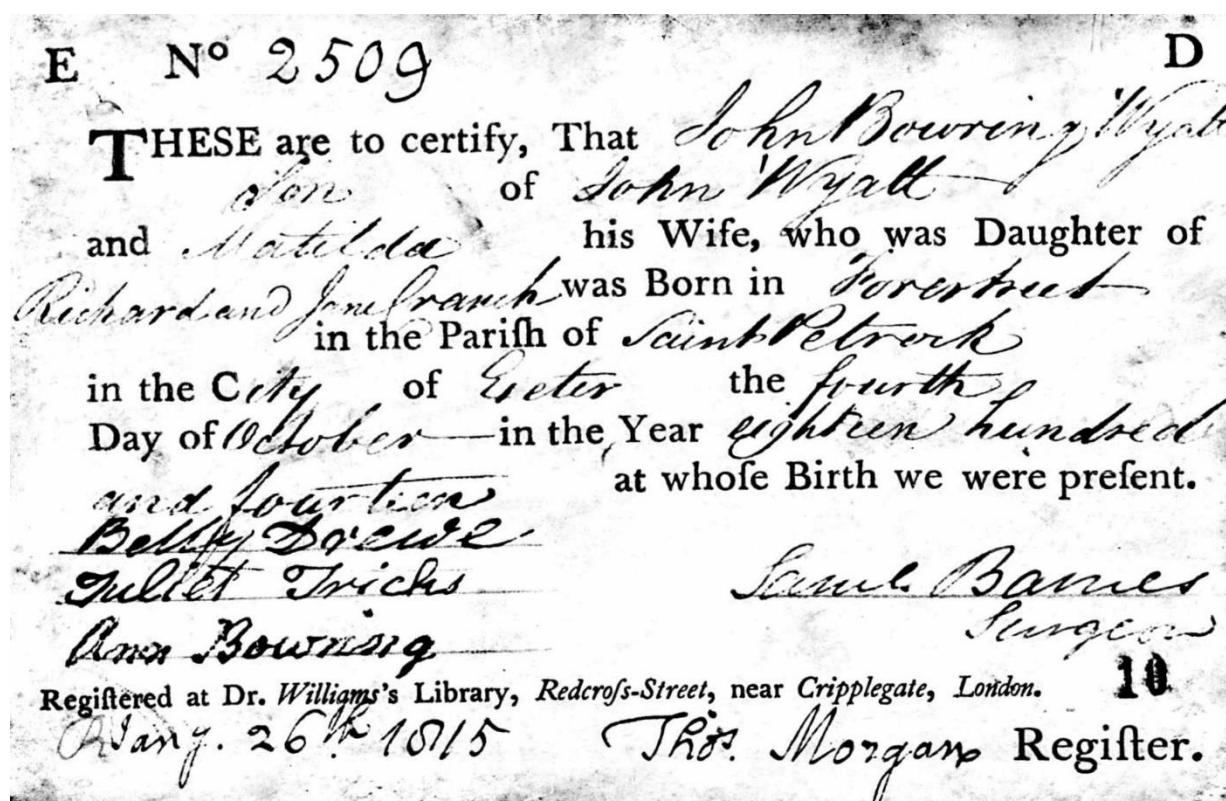 E No 2509 D
THESE are to certify, That John Bowring Wyatt
Son of John Wyatt
and Matilda his Wife, who was Daughter of
Richard and Jane Cranch was Born in Forestreet
in the Pariſh of Saint Petrock
in the City of Exeter the fourth
Day of October in the Year eighteen hundred
and fourteen at whoſe Birth we were preſent.
Betsy Drewe
Juliet Tricks Saml. Barnes
Surgeon
Ann Bowring
Regiſtered at Dr. Williams's Library, Redcroſs-Street, near Cripplegate, London. 10
Jany. 26th. 1815 Thos. Morgan Regiſter.